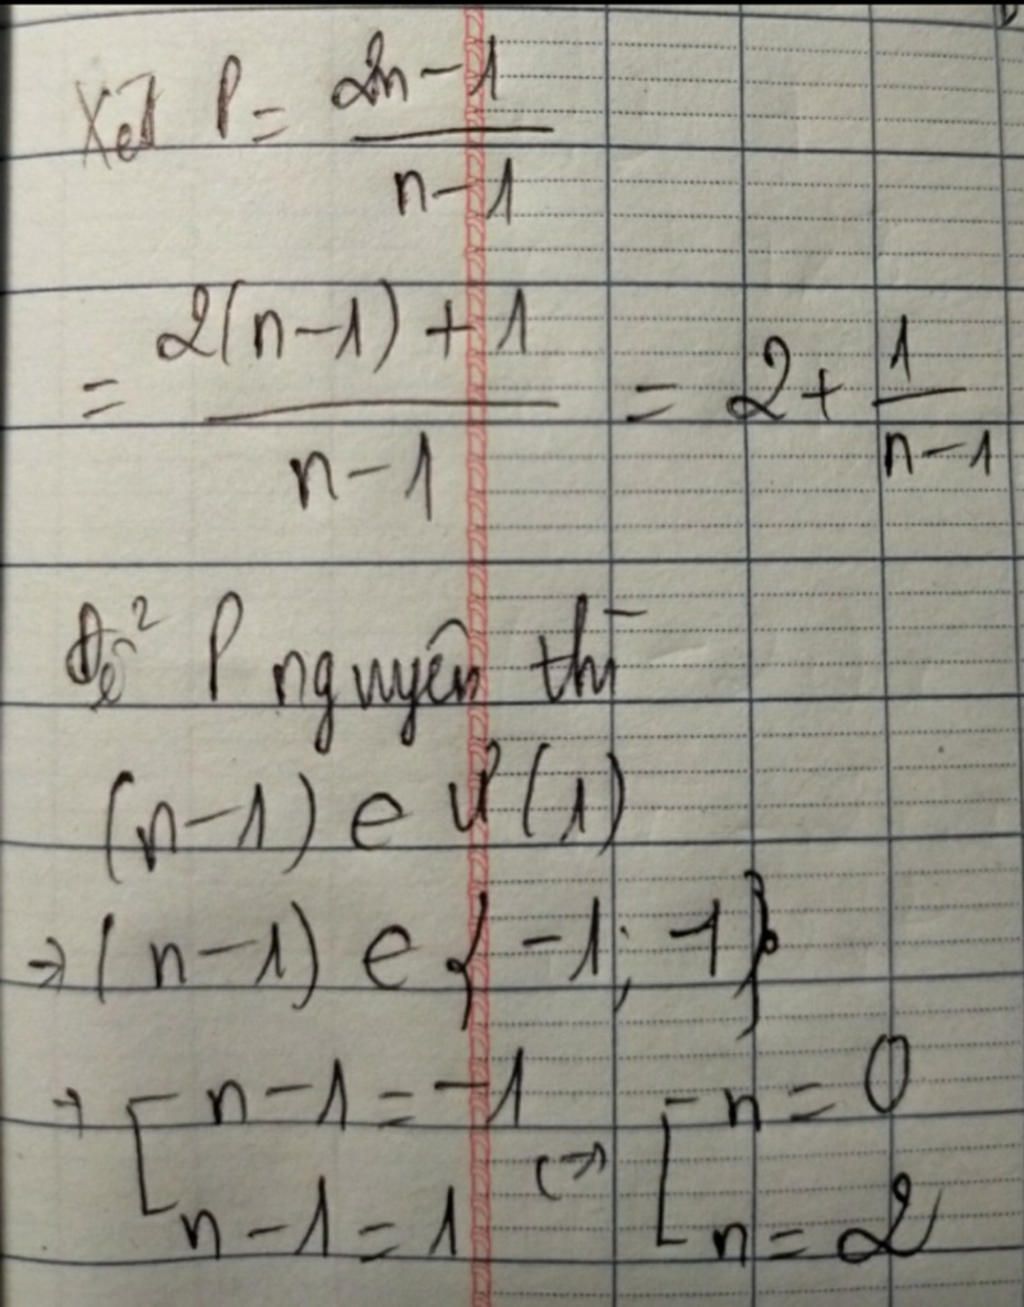 Xét P = \frac{2n-1}{n-1}
= \frac{2(n-1)+1}{n-1} = 2 + \frac{1}{n-1}
Để P nguyên thì
(n-1) e Ư(1)
→ (n-1) e {-1; 1}
→ [ n-1 = -1 (→) [ n = 0
n-1 = 1 n = 2